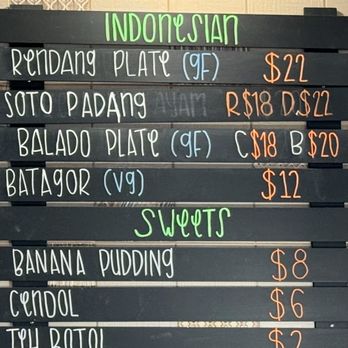 INDONESIAN
RENDANG PLATE (GF) $22
SOTO PADANG AYAM R$18 D$22
BALADO PLATE (GF) C$18 B$20
BATAGOR (VG) $12
SWEETS
BANANA PUDDING $8
CENDOL $6
TEH BOTOL $2